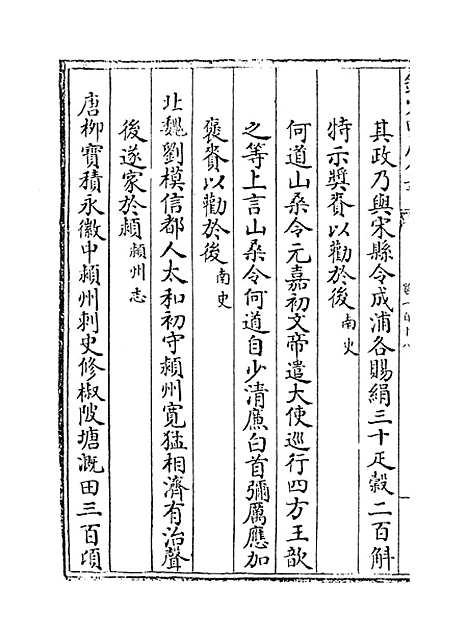 其政乃與宋縣令成浦各賜絹三十疋榖二百斛
特示奨賚以勸於後南史
何道山桑令元嘉初文帝遣大使巡行四方王歆
之等上言山桑令何道自少清廉白首彌厲應加
襃賚以勸於後南史
北魏劉模信都人太和初守潁州寛猛相濟有治聲
後遂家於潁潁州志
唐柳寳積永徽中潁州刺史修椒陂塘溉田三百頃